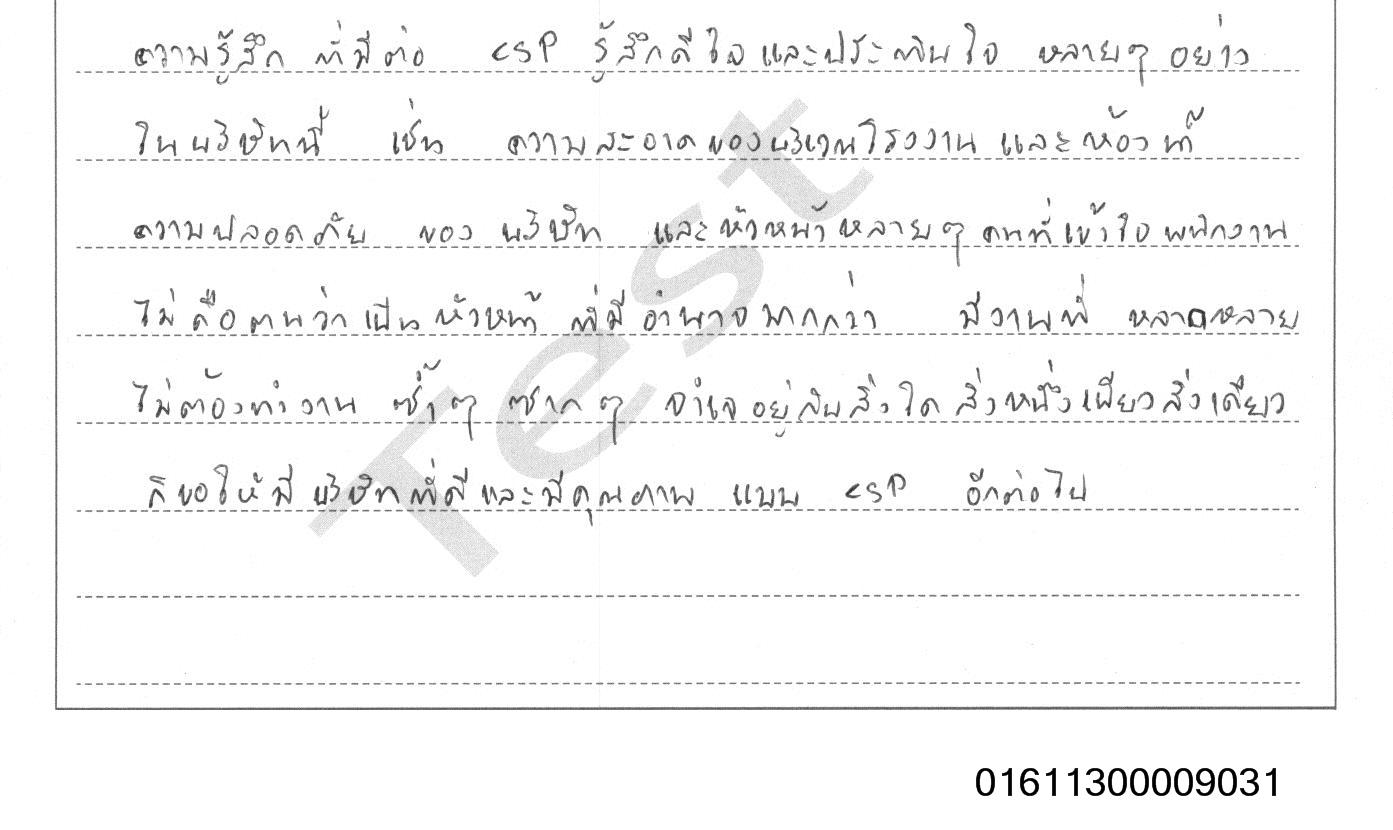 ความรู้สึก ที่มีต่อ CSP รู้สึกดีใจและประทับใจ หลายๆ อย่าง
ในบริษัทนี้ เช่น ความสะอาดของบริเวณโรงงาน และห้องน้ำ
ความปลอดภัย ของ บริษัท และหัวหน้าหลายๆ คนที่เข้าใจพนักงาน
ไม่ถือตนว่าเป็นหัวหน้า ที่มีอำนาจมากกว่า มีงานที่ หลากหลาย
ไม่ต้องทำงาน ซ้ำๆ ซากๆ จำเจอยู่กับสิ่งใด สิ่งหนึ่งเพียวสิ่งเดียว
ก็ขอให้มี บริษัทที่ดีและมีคุณภาพ แบบ CSP อีกต่อไป
Test
01611300009031